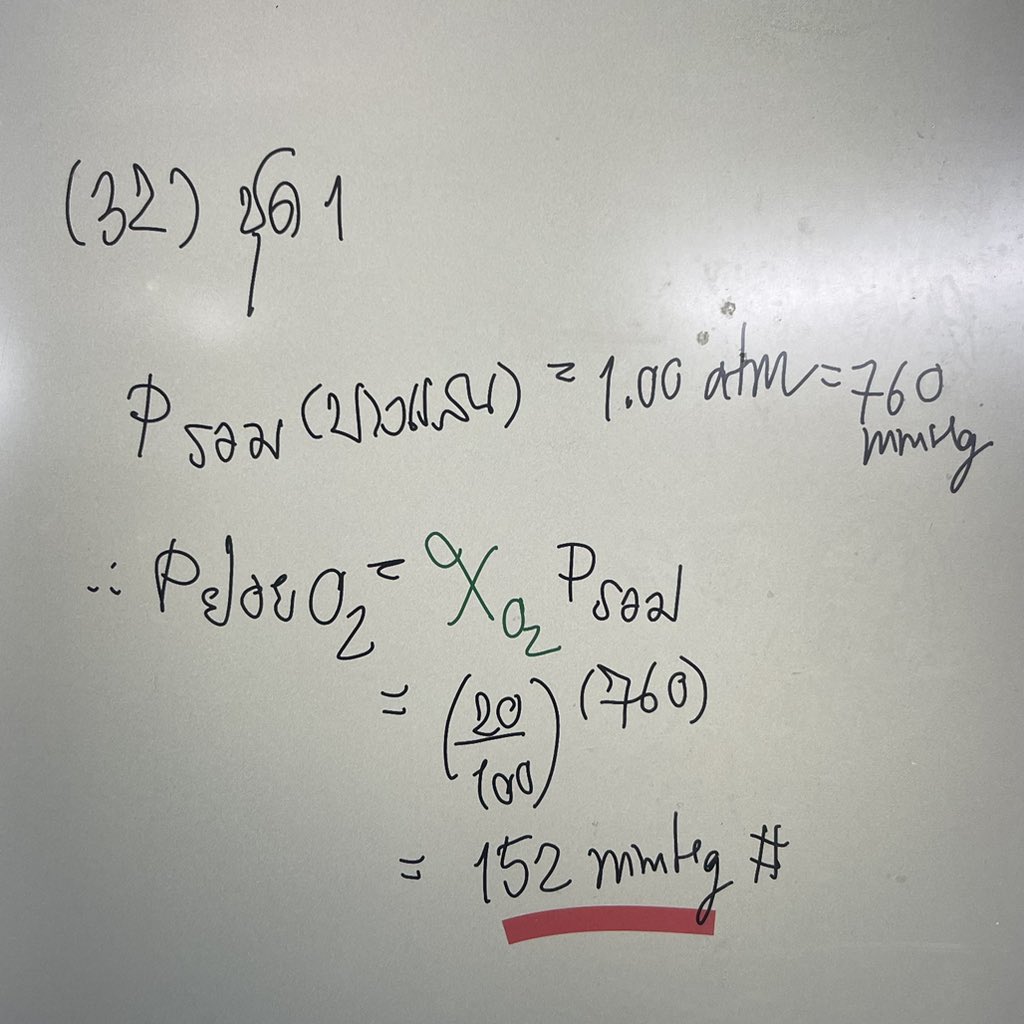 (32) ชุด 1
P รวม (บางแสน) = 1.00 atm = 760 mmHg
∴ Pย่อย O₂ = X O₂ P รวม
= (20/100) (760)
= 152 mmHg #